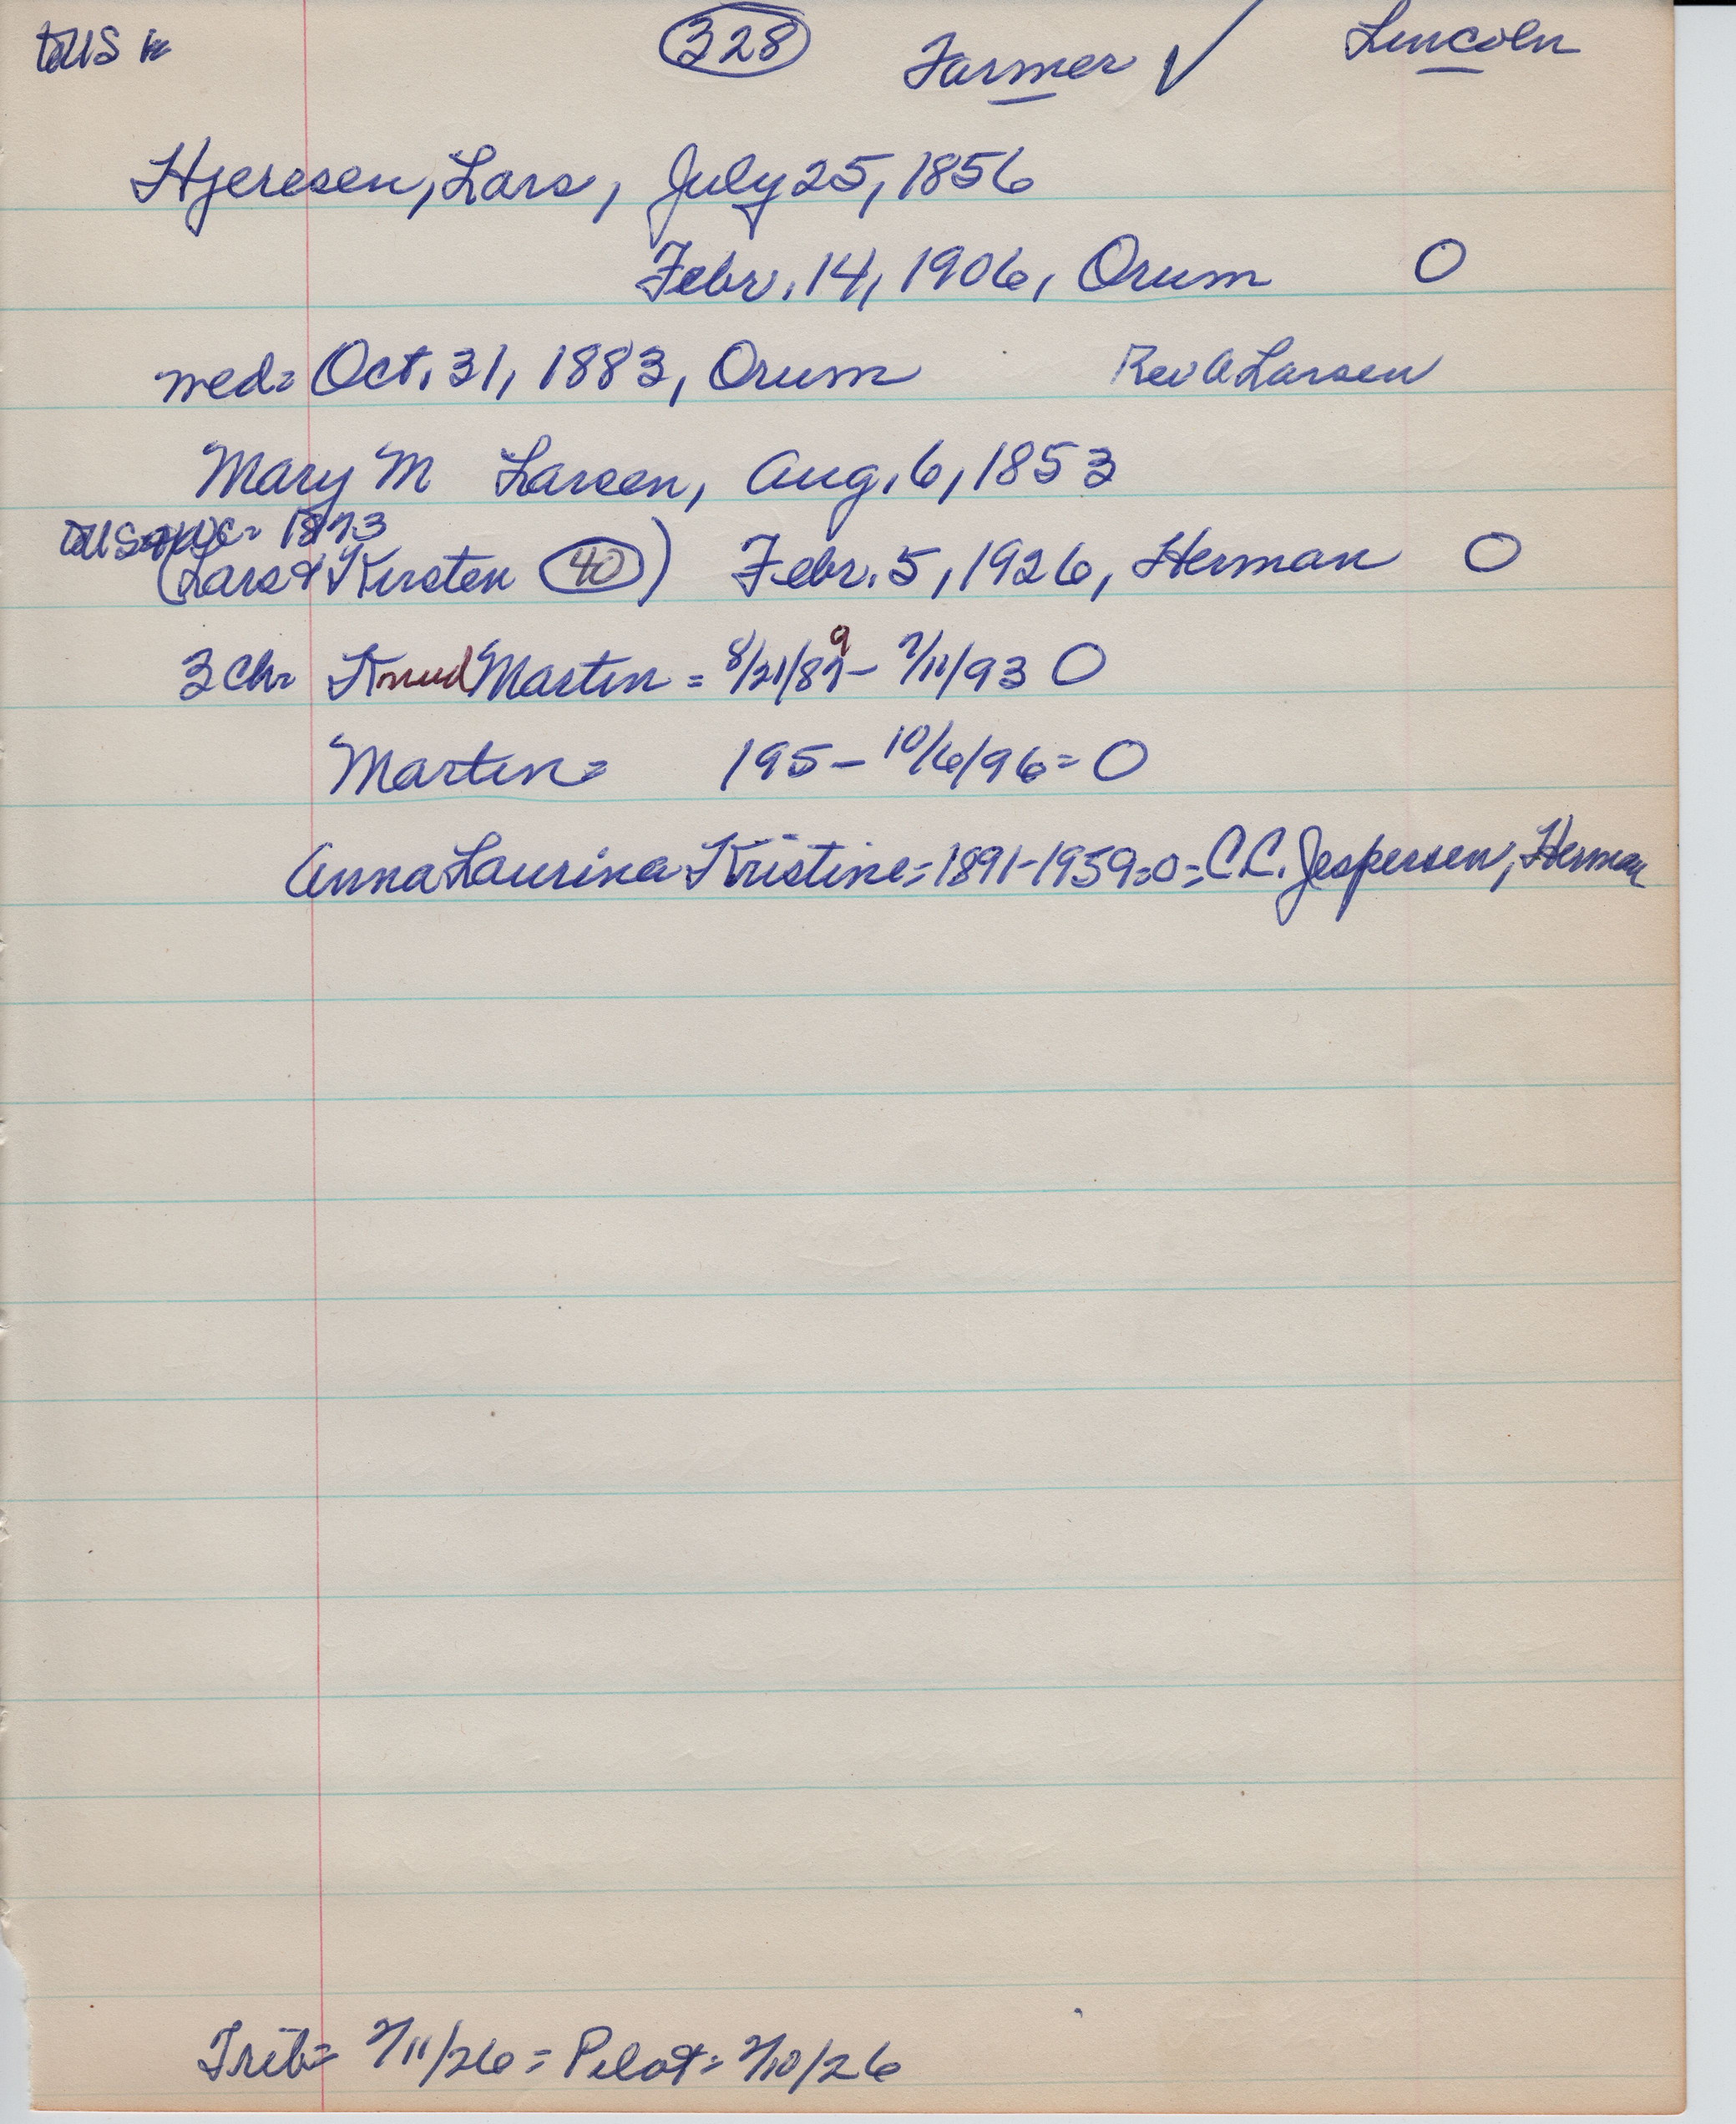 toUS =
328 Farmer ✓ Lincoln
Hjeresen, Lars, July 25, 1856
Febr. 14, 1906, Orum O
wed= Oct. 31, 1883, Orum Rev A Larsen
Mary M Larsen, Aug. 6, 1853
toUS = 1873
(Lars & Kirsten 40) Febr. 5, 1926, Herman O
3 Ch= Knud Martin = 8/21/89 - 2/11/93 O
Martin= 195 - 10/6/96 = O
Anna Laurina Kristine = 1891-1959=0= C.C. Jespersen, Herman
Trib= 2/11/26 = Pilot= 2/10/26